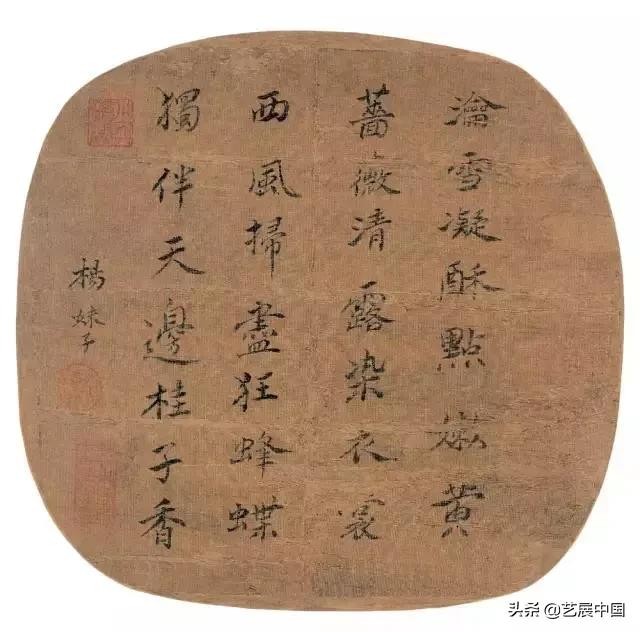 瀹雪凝酥點嫩黄
薔薇清露染衣裳
西風掃盡狂蜂蝶
獨伴天邊桂子香
楊妹子
头条 @艺展中国